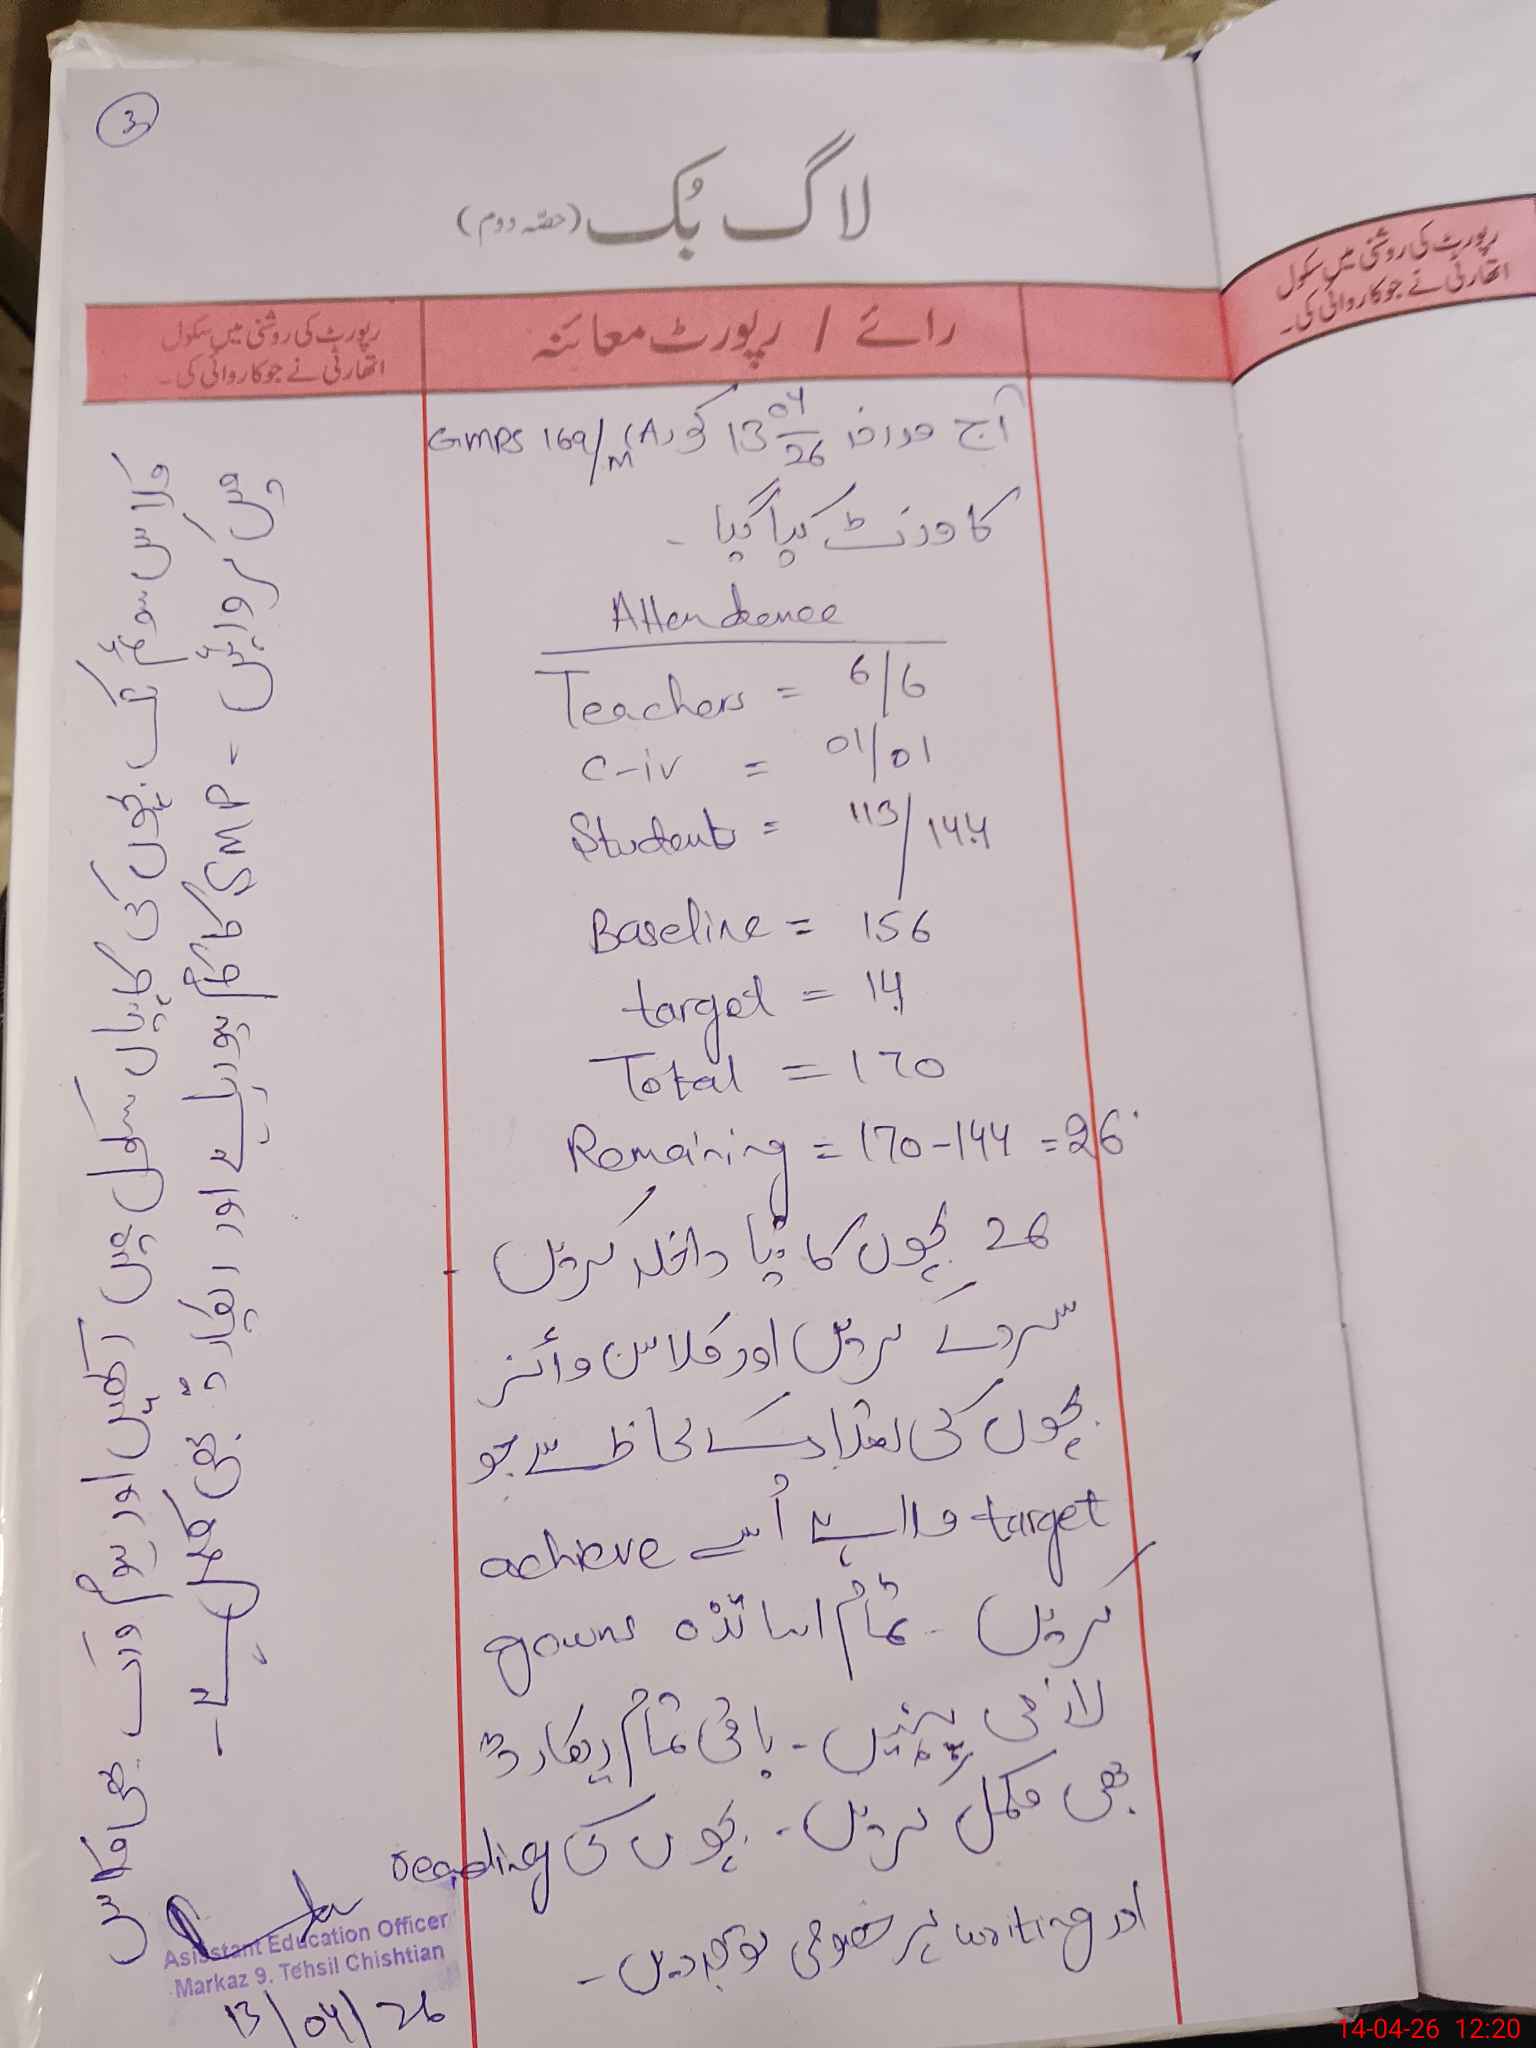 3
لاگ بُک (حصّہ دوم)
رائے / رپورٹ معائنہ
رپورٹ کی روشنی میں سکول
اتھارٹی نے جو کاروائی کی۔
آج مورخہ 13 04/26 کو GMPS 169/M
کا وزٹ کیا گیا -
Attendence
Teachers = 6/6
C-iv = 01/01
Students = 113/144
Baseline = 156
target = 14
Total = 170
Remaining = 170-144 = 26
26 بچوں کا نیا داخلہ کریں -
سروے کریں اور کلاس وائز
بچوں کی تعداد کے لحاظ سے جو
target ملا ہے اُسے achieve
کریں - تمام اساتذہ gowns
لازمی پہنیں - باقی تمام ریکارڈ
بھی مکمل کریں - بچوں کی reading
اور writing پر خصوصی توجہ دیں -
کلاس سوئم تک بچوں کی کاپیاں سکول میں رکھیں اور ہوم ورک بھی کلاس
میں کروائیں - SMP کا کام ہو رہا ہے اور ریکارڈ بھی مکمل ہے -
Assistant Education Officer
Markaz 9, Tehsil Chishtian
13/04/26
رپورٹ کی روشنی میں سکول
اتھارٹی نے جو کاروائی کی۔
14-04-26 12:20